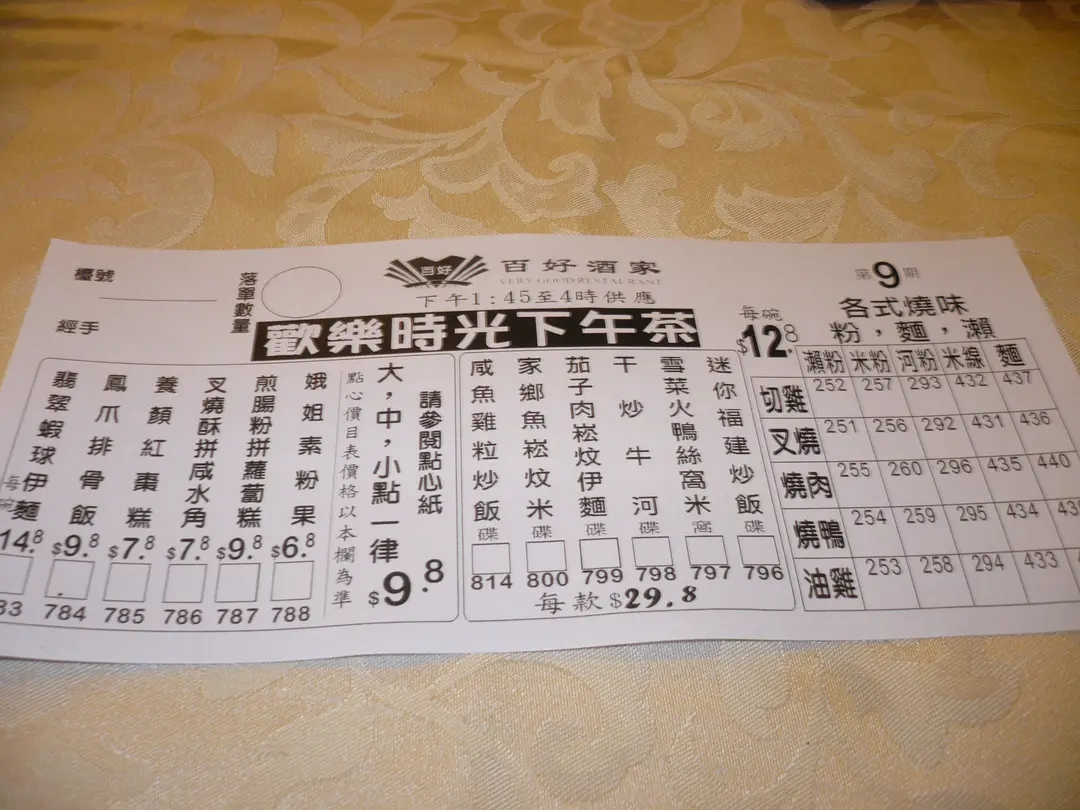 檯號
經手
落單數量
百好
百好酒家
VERY GOOD RESTAURANT
下午1:45至4時供應
歡樂時光下午茶
第9期
翡翠蝦球伊麵
每碗
14.8
鳳爪排骨飯
$9.8
784
養顏紅棗糕
$7.8
785
叉燒酥拼咸水角
$7.8
786
煎腸粉拼蘿蔔糕
$9.8
787
娥姐素粉果
$6.8
788
請參閱點心紙
大,中,小點一律
$9.8
點心價目表價格以本欄為準
咸魚雞粒炒飯
碟
814
家鄉魚崧炆米
碟
800
茄子肉崧炆伊麵
碟
799
干炒牛河
碟
798
雪菜火鴨絲窩米
窩
797
迷你福建炒飯
碟
796
每款$29.8
每碗
$12.8
各式燒味
粉,麵,瀨
瀨粉 米粉 河粉 米線 麵
切雞 252 257 293 432 437
叉燒 251 256 292 431 436
燒肉 255 260 296 435 440
燒鴨 254 259 295 434
油雞 253 258 294 433